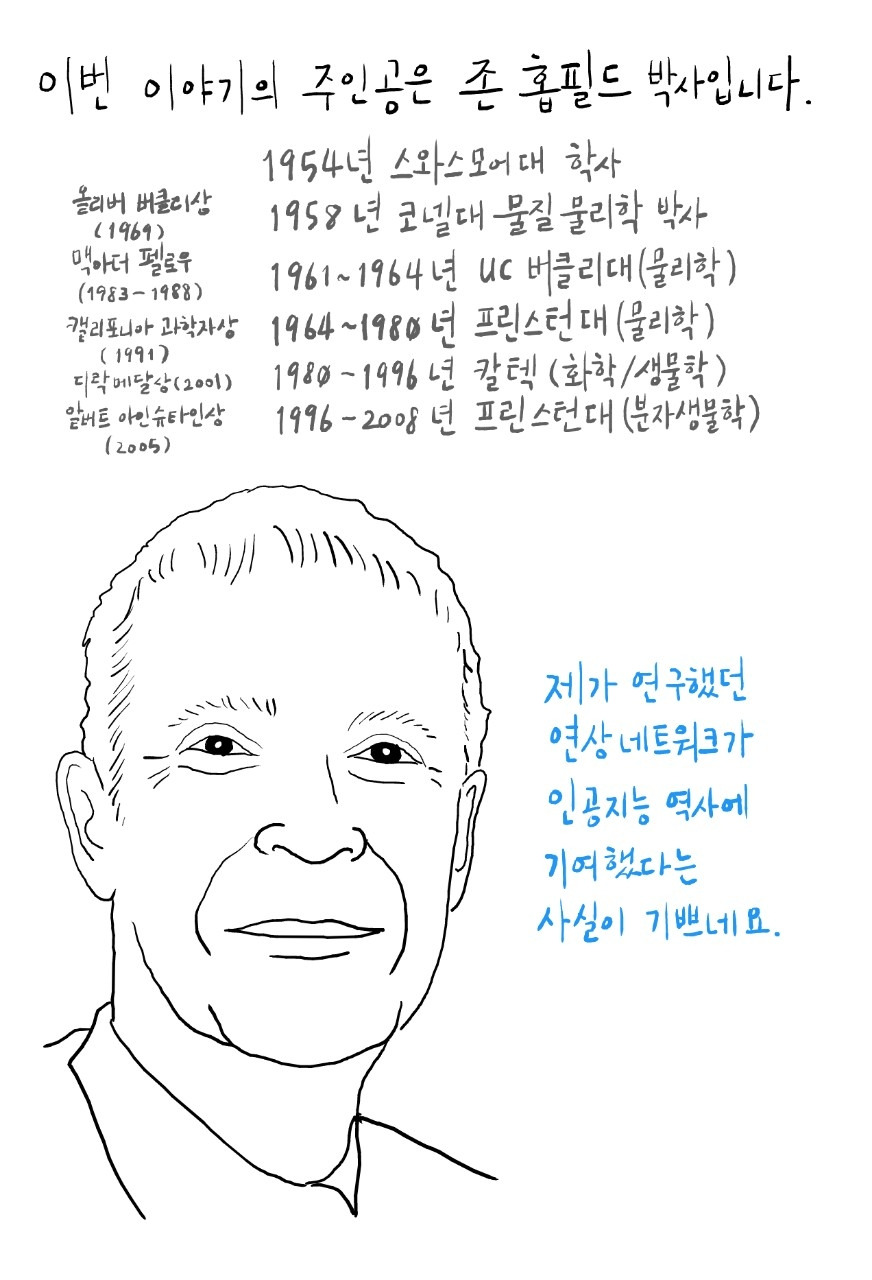 이번 이야기의 주인공은 존 홉필드 박사입니다.
1954년 스와스모어대 학사
1958년 코넬대 물질 물리학 박사
1961~1964년 UC 버클리대(물리학)
1964~1980년 프린스턴대(물리학)
1980-1996년 칼텍(화학/생물학)
1996-2008년 프린스턴대(분자생물학)
올리버 버클리상
(1969)
맥아더 펠로우
(1983-1988)
캘리포니아 과학자상
(1991)
디락메달상(2001)
알버트 아인슈타인상
(2005)
제가 연구했던
연상 네트워크가
인공지능 역사에
기여했다는
사실이 기쁘네요.